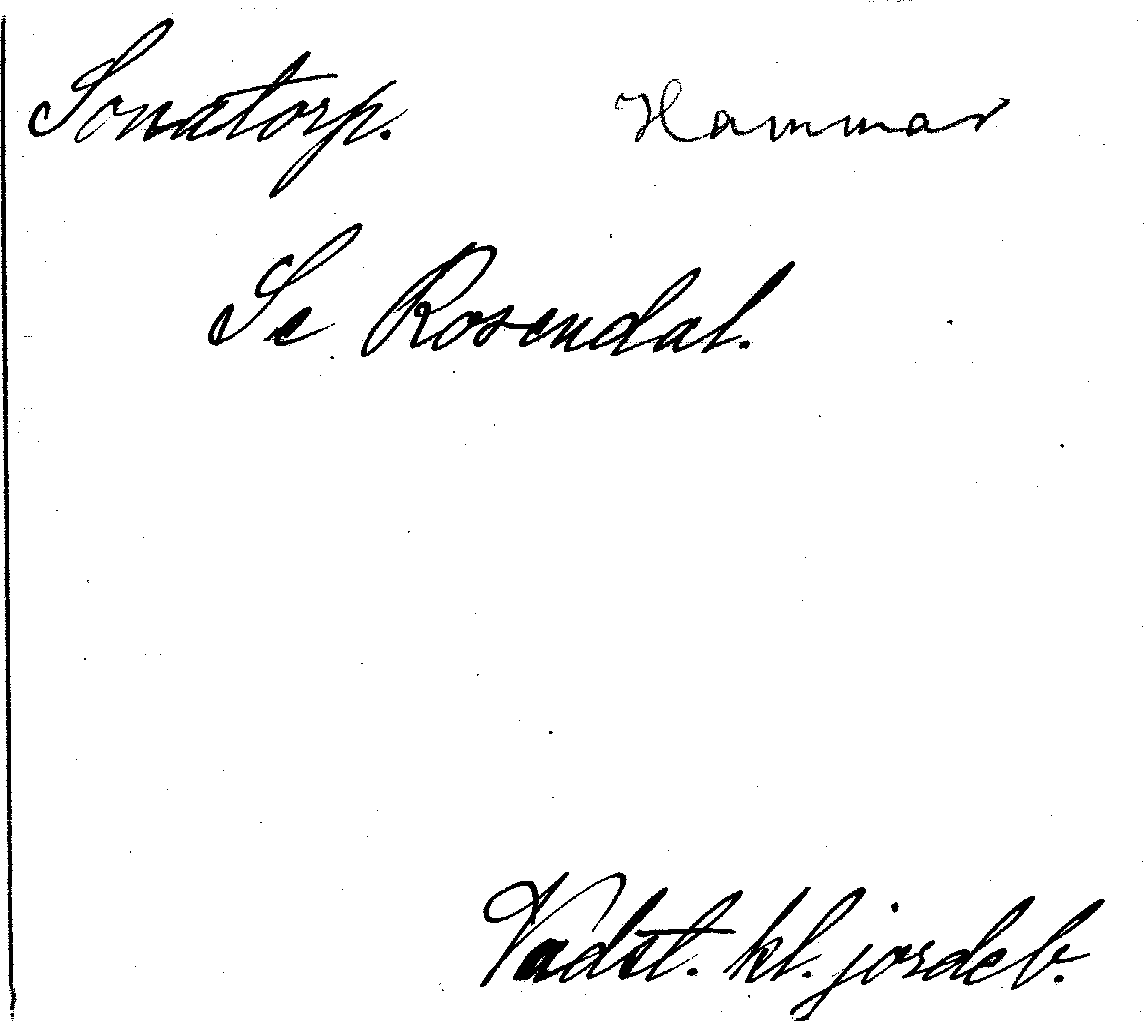 Sonatorp. Hammar
Se Rosendal.
Vadst. kl. jordeb.